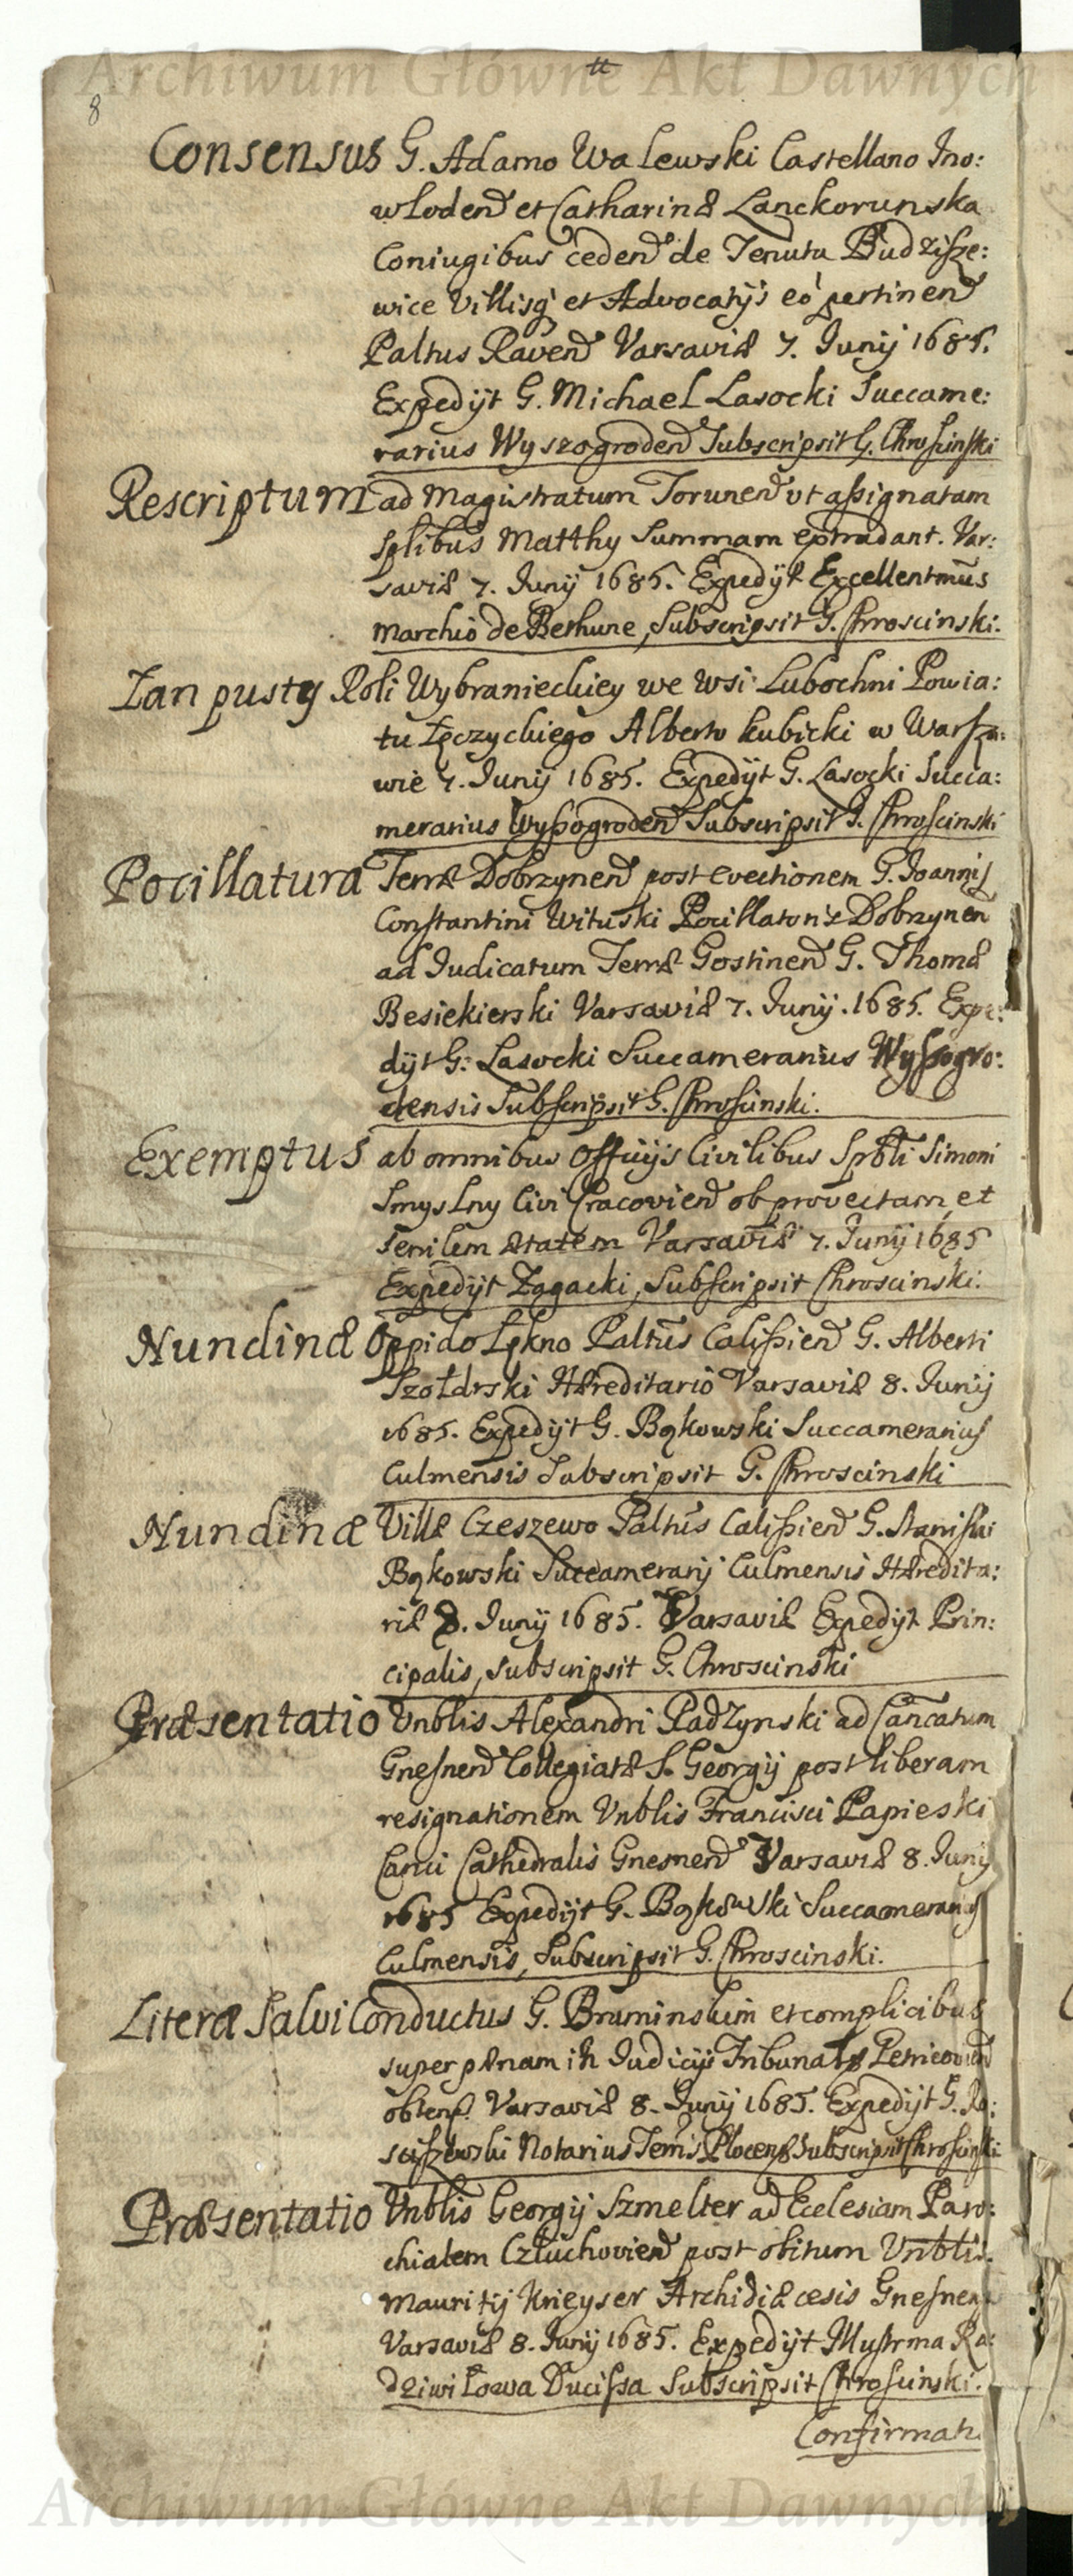 Archiwum Główne Akt Dawnych
8
Consensus G. Adamo Walewski Castellano Ino:
wloden et Catharinæ Lanckorunska
Coniugibus ceden de Tenuta Budzisze:
wice Villisq et Advocatijs eo pertinen
Paltus Raven Varsaviæ 7. Junij 1685.
Expedijt G. Michael Lasocki Succame:
rarius Wyszogroden Subscripsit G. Chroscinski
Rescriptum ad Magistratum Torunen vt assignatam
Splibus Matthy Summam extradant. Var:
saviæ 7. Junij 1685. Expedijt Excellentmus
Marchio de Bethune, Subscripsit G. Chroscinski.
Zan pustey Roli Wybranieckiey we wsi Lubochni Powia:
tu Łęczyckiego Alberto Kubicki w Warsza:
wie 7. Junij 1685. Expedijt G. Lasocki Succa:
merarius Wyßogroden Subscripsit G. Chroscinski
Pocillatura Terræ Dobrzynen post evectionem G. Joannis
Constantini Wituski Pocillatoris Dobrzynen
ad Judicatum Terræ Gostinen G. Thomæ
Besiekierski Varsaviæ 7. Junij. 1685. Expe:
dijt G. Lasocki Succamerarius Wyßogro:
densis Subscripsit G. Chroscinski.
Exemptus ab omnibus Officijs Civilibus Spbli Simoni
Smyslny Civi Cracovien ob provectam et
Senilem ætatem Varsaviæ 7. Junij 1685
Expedijt Zagacki, Subscripsit Chroscinski.
Nundinæ Oppido Łękno Paltus Calissien G. Alberti
Szołdrski Hæreditario Varsaviæ 8. Junij
1685. Expedijt G. Bąkowski Succamerarius
Culmensis Subscripsit G. Chroscinski
Nundinæ Villæ Czeszewo Paltus Calissien G. Stanislai
Bąkowski Succamerarij Culmensis Hæredita:
riæ 8. Junij 1685. Varsaviæ Expedijt Prin:
cipalis, subscripsit G. Chroscinski
Præsentatio Vnblis Alexandri Radzynski ad Cancatum
Gnesnen Collegiatæ S. Georgij post liberam
resignationem Vnblis Francisci Papieski
Canci Cathedralis Gnesnen Varsaviæ 8. Junij
1685 Expedijt G. Bąkowski Succamerarius
Culmensis, Subscripsit G. Chroscinski.
Literæ Salvi Conductus G. Braminskim et complicibus
super pænam in Judicijs Tribunalis Petricovien
obtens. Varsaviæ 8. Junij 1685. Expedijt G. Ro:
sciszewski Notarius Terris Plocens Subscripsit Chroscinski
Præsentatio Vnblis Georgij Szmelter ad Ecclesiam Paro:
chialem Człuchovien post obitum Vnblis
Mauritij Krieyser Archidiæcesis Gnesnen
Varsaviæ 8. Junij 1685. Expedijt Illustrma Ra:
dziwiłowa Ducissa Subscripsit Chroscinski.
Confirmati
Archiwum Główne Akt Dawnych